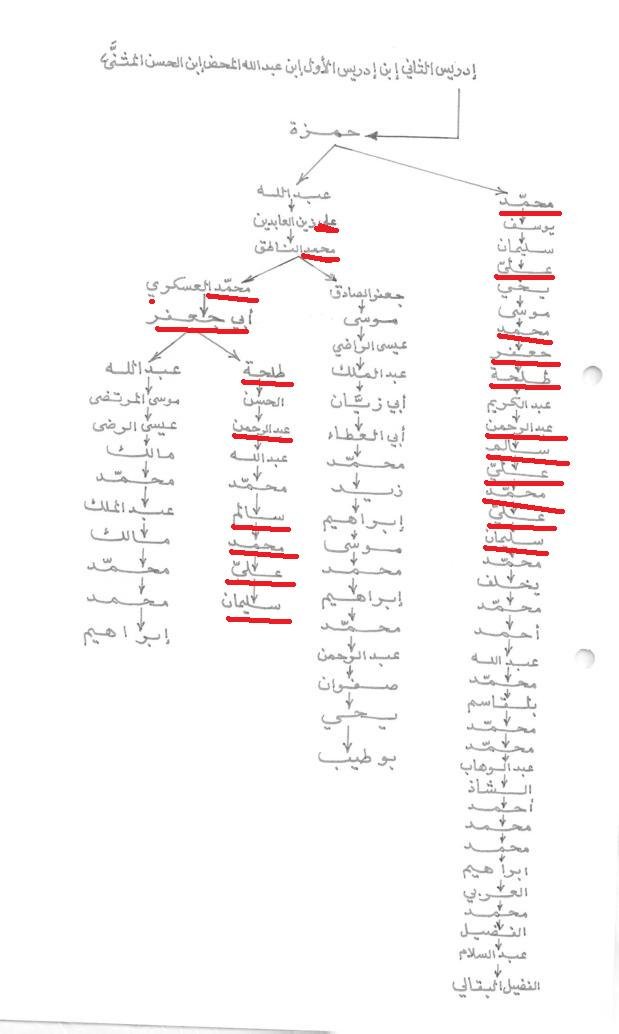 إدريس الثاني إبن إدريس الأول إبن عبد الله المحض إبن الحسن المثنَّى
حمزة
محمّد
يوسف
سليمان
عليّ
يحي
موسى
محمد
جعفر
طلحة
عبد الكريم
عبد الرحمن
سالم
عليّ
محمّد
عليّ
سليمان
محمّد
يخلف
محمّد
أحمد
عبد الله
محمّد
بلقاسم
محمّد
محمّد
عبد الوهاب
الشاذ
أحمد
محمد
محمد
ابراهيم
العربي
محمد
الفضيل
عبد السلام
الفضيل البقالي
عبد الله
علي زين العابدين
محمد الناطق
جعفر الصادق
موسى
عيسى الراضي
عبد الملك
أبي زيَّان
أبي العطاء
محمد
زيد
إبراهيم
موسى
محمد
إبراهيم
محمّد
عبد الرحمن
صفوان
يحي
بوطيب
محمّد العسكري
أبي جعفر
طلحة
الحسن
عبد الرحمن
عبد الله
محمّد
سالم
محمّد
عليّ
سليمان
عبد الله
موسى المرتضى
عيسى الرضى
مالك
محمّد
عبد الملك
مالك
محمّد
محمد
إبراهيم